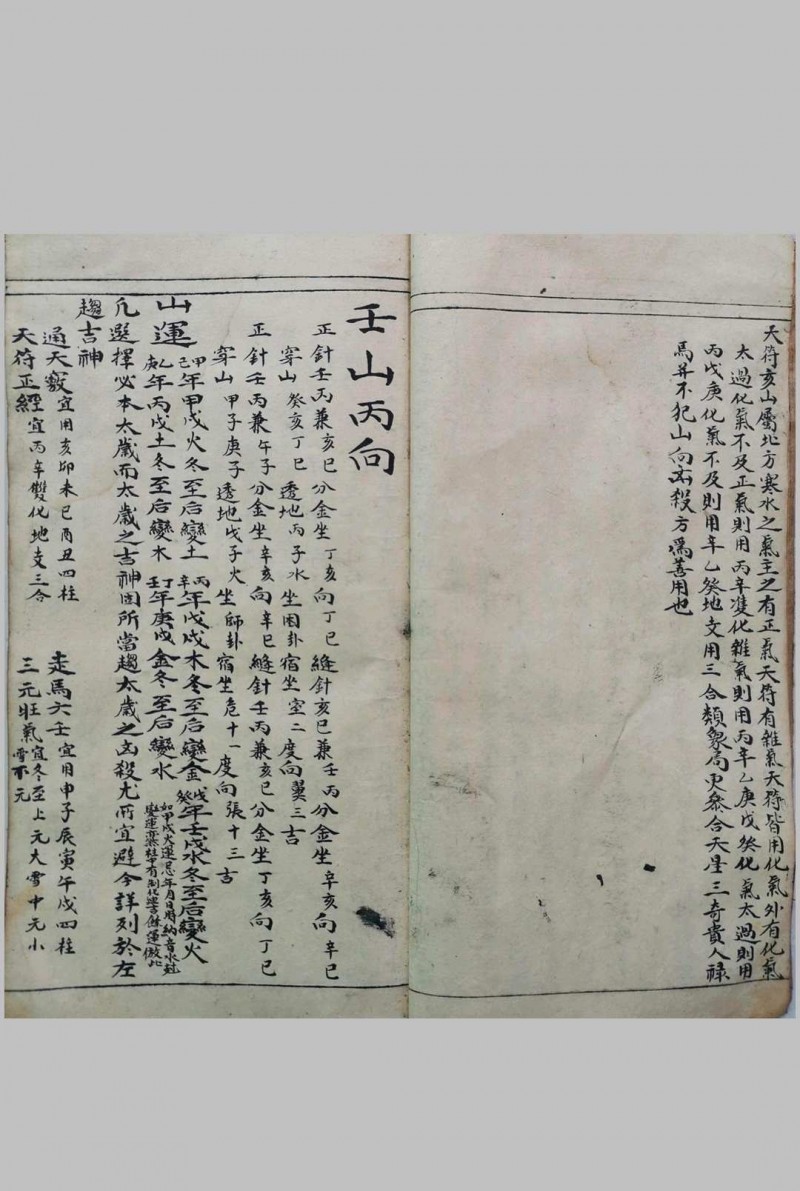 天符亥山屬北方寒水之氣主之有正氣天符有雜氣天符皆用化氣外有化氣
太過化氣不及正氣則用丙辛雙化雜氣則用丙辛乙庚戊癸化氣太過則用
丙戊庚化氣不及則用辛乙癸地支用三合類象局更參合天星三奇貴人祿
馬并不犯山向凶殺方為善用也
壬山丙向
正針壬丙兼亥巳分金坐丁亥向丁巳縫針亥巳兼壬丙分金坐辛亥向辛巳
穿山癸亥丁巳透地丙子水坐困卦宿坐室二度向翼三吉
正針壬丙兼午子分金坐辛亥向辛巳縫針壬丙兼亥巳分金坐丁亥向丁巳
穿山甲子庚子透地戊子火坐師卦宿坐危十一度向張十三吉
山運甲己年甲戌火冬至后變土丙辛年戊戌木冬至后變金戊癸年壬戌水冬至后變火
乙庚年丙戌土冬至后變木丁壬年庚戌金冬至后變水如甲戌火運忌年月日時納音水尅
凡選擇必本太歲而太歲之吉神固所當趨太歲之凶殺尤所宜避今詳列於左
趨吉神
通天竅宜用亥卯未巳酉丑四柱 走馬六壬宜用申子辰寅午戌四柱
天符正經宜丙辛雙化地支三合 三元旺氣宜冬至上元大雪中元小雪下元